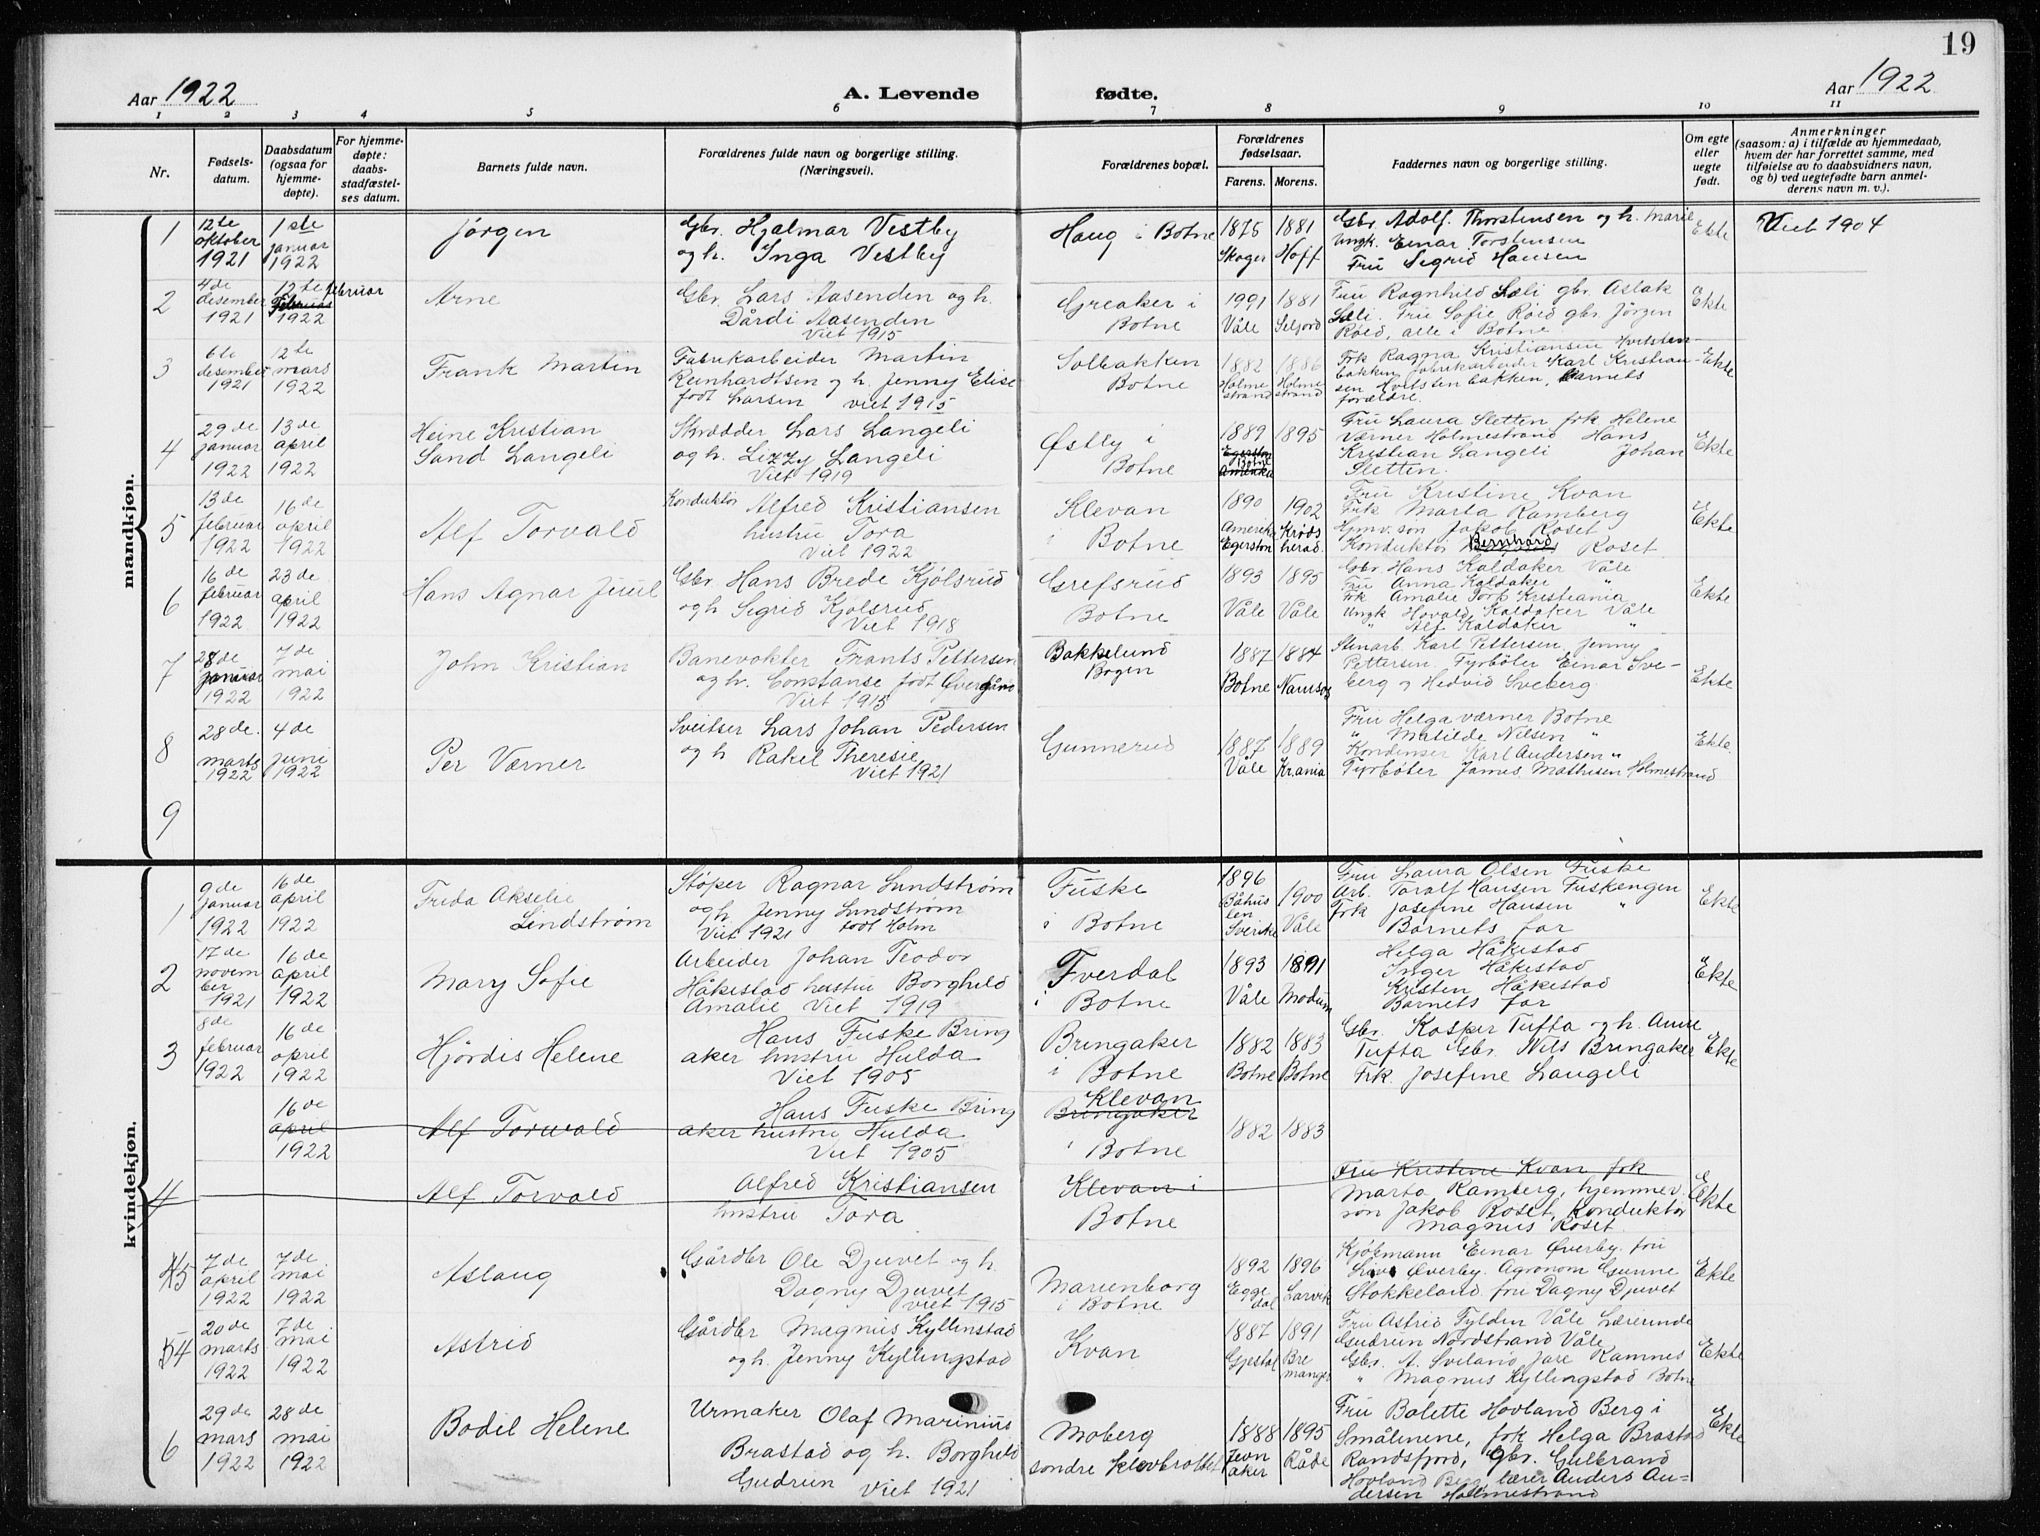 19
Aar 1922
A. Levende
fødte.
Aar 1922
1 2 3 4 5 6 7 8 9 10 11
Nr.
Fødsels-
datum.
Daabsdatum
(ogsaa for
hjemme-
døpte).
For hjemme-
døpte:
daabs-
stadfæstel-
ses datum.
Barnets fulde navn.
Forældrenes fulde navn og borgerlige stilling.
(Næringsvei).
Forældrenes bopæl.
Forældrenes
fødselsaar.
Farens. Morens.
Faddernes navn og borgerlige stilling.
Om egte
eller
uegte
født.
Anmerkninger
(saasom: a) i tilfælde av hjemmedaab,
hvem der har forrettet samme, med
tilføielse av to daabsvidners navn,
og b) ved uegtefødte barn anmel-
derens navn m. v.).
mandkjøn.
1
12te
oktober
1921
1ste
januar
1922
Jørgen
Gbr. Hjalmar Vestby
og h. Inga Vestby
Haug i Botne
1875 1881
Skoger Hoff
Gbr. Adolf. Thorstensen og h. Marie
Ungk. Einar Torstensen
Fru Sigrid Hansen
Ekte
Viet 1904
2
4de
desember
1921
12te februar
Februar
1922
Arne
Gbr. Lars Aasenden og h.
Dårdi Aasenden
Viet 1915
Greaker i
Botne
1991 1881
Våle Seljord
Fru Ragnhild Sæli gbr. Aslak
Sæli. Fru Sofie Røed gbr. Jørgen
Røed, alle i Botne
Ekte
3
6te
desember
1921
12te
mars
1922
Frank Martin
Fabrikarbeider Martin
Reinhardtsen og h. Jenny Elise
født Larsen viet 1915
Solbakken
Botne
1882 1886
Holme Holme
strand strand
Frk Ragna Kristiansen Hvitsten-
bakken, fabrikarbeider Karl Kristian-
sen Hvitstenbakken, Barnets
forældre.
Ekte
4
29de
januar
1922
13de
april
1922
Heine Kristian
Sand Langeli
Skrædder Lars Langeli
og h. Lizzy Langeli
Viet 1919
Østby i
Botne
1889 1895
Egerston
Botne
Amerika
Fru Laura Sletten frk Helene
Værner Holmestrand Hans
Kristian Langeli Johan
Sletten.
Ekte
5
13de
februar
1922
16de
april
1922
Alf Torvald
Konduktør Alfred Kristiansen
hustru Tora
Viet 1922
Klevan
i Botne
1890 1902
Amerika Krøds
Egerston herad.
Fru Kristine Kvan
Frk Marta Ramberg
Gmv. søn Jakob Roset
Konduktør Bernhard Roset
Ekte
6
16de
februar
1922
23de
april
1922
Hans Agnar Juul
Gbr. Hans Brede Kjølsrud
og h. Sigrid Kjølsrud
Viet 1918
Grefsrud
Botne
1893 1895
Våle Våle
Gbr. Hans Kaldaker Våle
Fru Anna Kaldaker "
Frk Amalie Torp Kristiania
Ungk Hovald Kaldaker Våle
" Alf Kaldaker "
Ekte
7
28de
januar
1922
7de
mai
1922
John Kristian
Banevokter Frants Pettersen
og h. Constanse født Øvergård
Viet 1915
Bakkelund
Bogen
1887 1884
Botne Namsos
Stenarb. Karl Pettersen, Jenny
Pettersen. Fyrbøter Einar Sve-
berg og Hedvid Sveberg.
Ekte
8
28de.
marts
1922
4de
juni
1922
Per Værner
Sveitser Lars Johan Pedersen
og h Rakel Theresie
Viet 1921
Gunnerud
1887 1889
Våle Kr.ania
Fru Helga værner Botne
" Matilde Nilsen "
Kondenser Karl Andersen "
Fyrbøter James Mathisen Holmestrand
Ekte
9
kvindekjøn.
1
9de
januar
1922
16de
april
1922
Freda Akselie
Lindstrøm
Støper Ragnar Lundstrøm
og h. Jenny Lundstrøm
Viet 1921 født Holm
Fuske
i Botne
1896 1900
Båhus
len
Sverike Våle
Fru Laura Olsen Fuske
Arb. Toralf Hansen Fuskengen
Frk Josefine Hansen "
Barnets far
Ekte
2
17de
novem
ber
1921
16de
april
1922
Mary Sofie
Arbeider Johan Teodor
Håkestad hustru Borghild
Amalie Viet 1919
Fverdal
i Botne
1893 1891
Våle Modum
Helga Håkestad
Inger Håkestad
Kristen Håkestad
Barnets far
Ekte
3
8de
februar
1922
16de
april
1922
Hjørdis Helene
Hans Fuske Bring
aker hustru Hulda
Viet 1905
Bringaker
i Botne
1882 1883
Botne Botne
Gbr. Kasper Tufta og h. Anne
Tufta Gbr. Nils Bringaker
Frk. Josefine Langeli
Ekte
16de
april
1922
Alf Torvald
Hans Fuske Bring
aker hustru Hulda
Viet 1905
Klevan
Bringaker
i Botne
1882 1883
4
Alf Torvald
Alfred Kristiansen
hustru Tora
Klevan i
Botne
Fru Kristine Kvan frk
Marta Ramberg, hjemmev.
søn Jakob Roset, Konduktør
Magnus Roset
Ekte
5
7de
april
1922
7de
mai
1922
Aslaug
Gårdbr Ole Djuvet og h.
Dagny Djuvet
viet 1915
Marienborg
i Botne
1892 1896
Egge
dal Larvik
Kjøbmann Einar Øverby. fru
Liv Øverby. Agronom Gunne
Stokkeland. fru Dagny Djuvet
Ekte
4
20de
marts
1922
7de
mai
1922
Astrid
Gårdbr Magnus Kyllinstad
og h. Jenny Kyllingstad
Kvan
1887 1891
Gjestal Bre
manger
Fru Astrid Fylden Våle Lærerinde
Gudrun Nordstrand Våle
Gbr. A. Sviland Jare Ramnes
" Magnus Kyllingstad Botne
Ekte
6
29de
mars
1922
28de
mai
1922
Bodil Helene
Urmaker Olaf Marinius
Brastad og h. Borghild
Gudrun Viet 1921
Moberg
søndre Klevbrottet
1888 1895
Jevn
aker Råde
Fru Bolette Hovland Berg i
Smålenene, frk Helga Brastad
Randsfjord, Gbr. Gulbrand
Hovland Berg, lærer Anders An-
dersen Holmestrand
Ekte